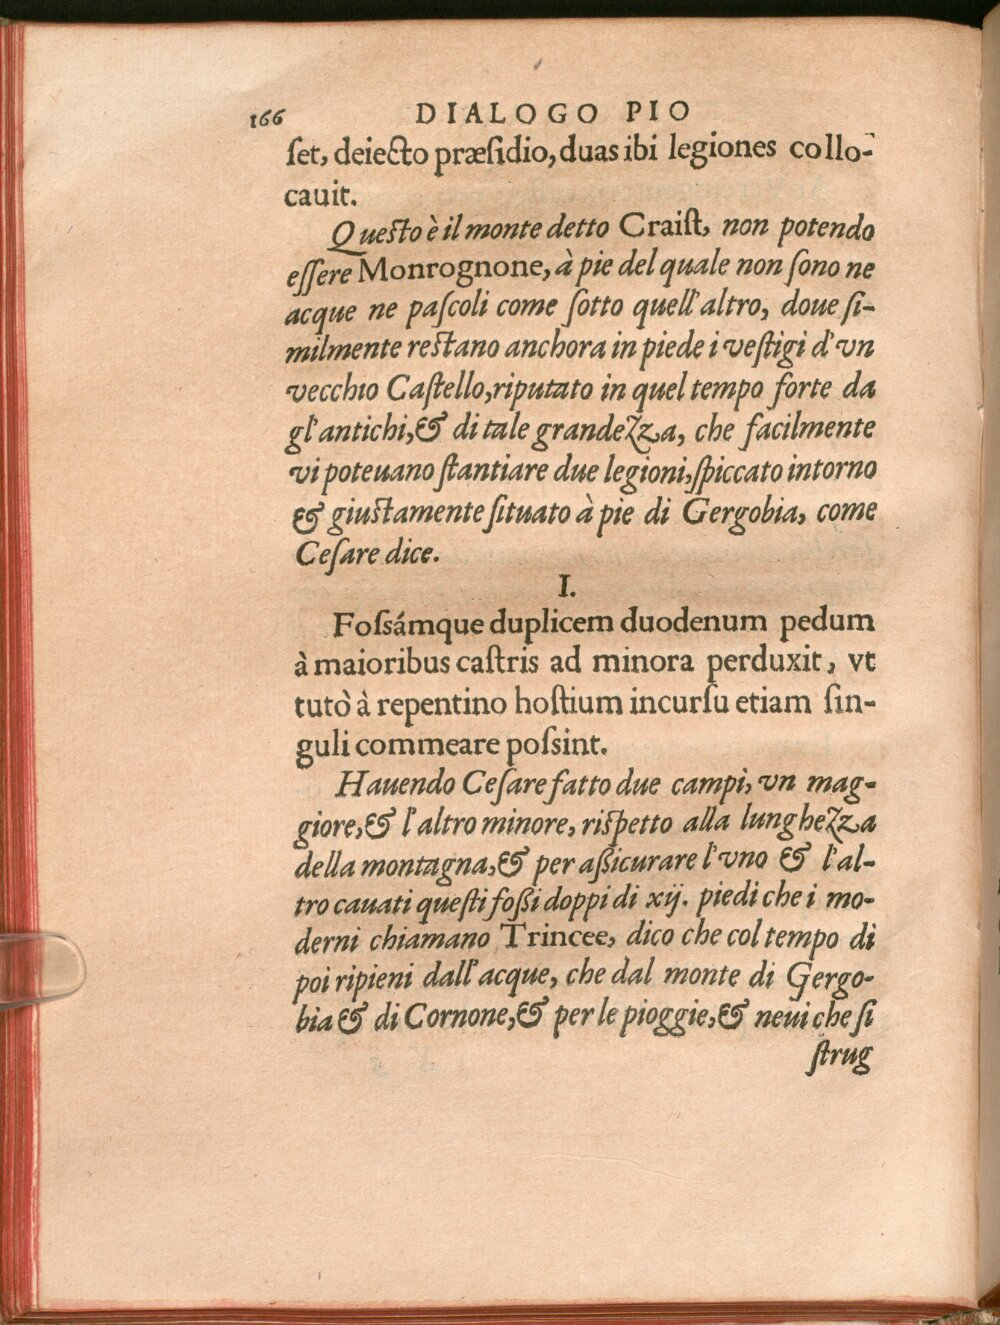 166 DIALOGO PIO
ſet, deiecto præſidio, duas ibi legiones collo-
cauit.
Queſto è il monte detto Craiſt, non potendo
eſſere Monrognone, à pie del quale non ſono ne
acque ne paſcoli come ſotto quell'altro, doue ſi-
milmente reſtano anchora in piede i veſtigi d'vn
vecchio Caſtello, riputato in quel tempo forte da
gl'antichi, & di tale grandezza, che facilmente
vi poteuano ſtantiare due legioni, ſpiccato intorno
& giuſtamente ſituato à pie di Gergobia, come
Ceſare dice.
I.
Foſsámque duplicem duodenum pedum
à maioribus caſtris ad minora perduxit, vt
tutò à repentino hoſtium incurſu etiam ſin-
guli commeare poſsint.
Hauendo Ceſare fatto due campi, vn mag-
giore, & l'altro minore, riſpetto alla lunghezza
della montagna, & per aßicurare l'vno & l'al-
tro cauati queſti foßi doppi di xij. piedi che i mo-
derni chiamano Trincee, dico che col tempo di
poi ripieni dall'acque, che dal monte di Gergo-
bia & di Cornone, & per le pioggie, & neui che ſi
ſtrug